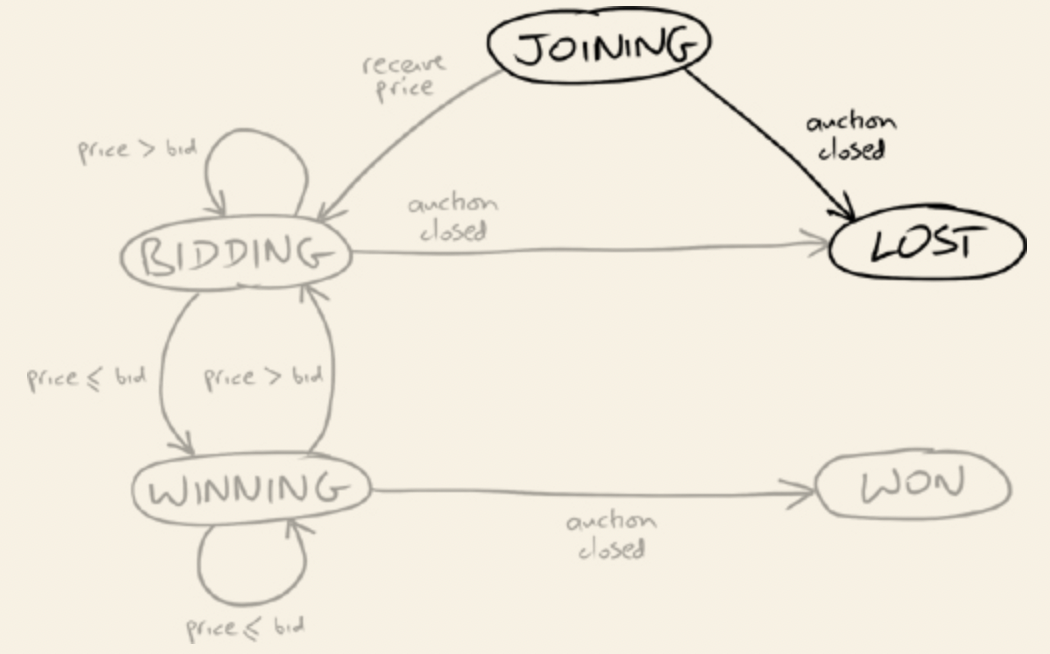 JOINING
receive
price
auction
closed
price > bid
auction
closed
BIDDING
LOST
price ≤ bid
price > bid
WINNING
WON
auction
closed
price ≤ bid